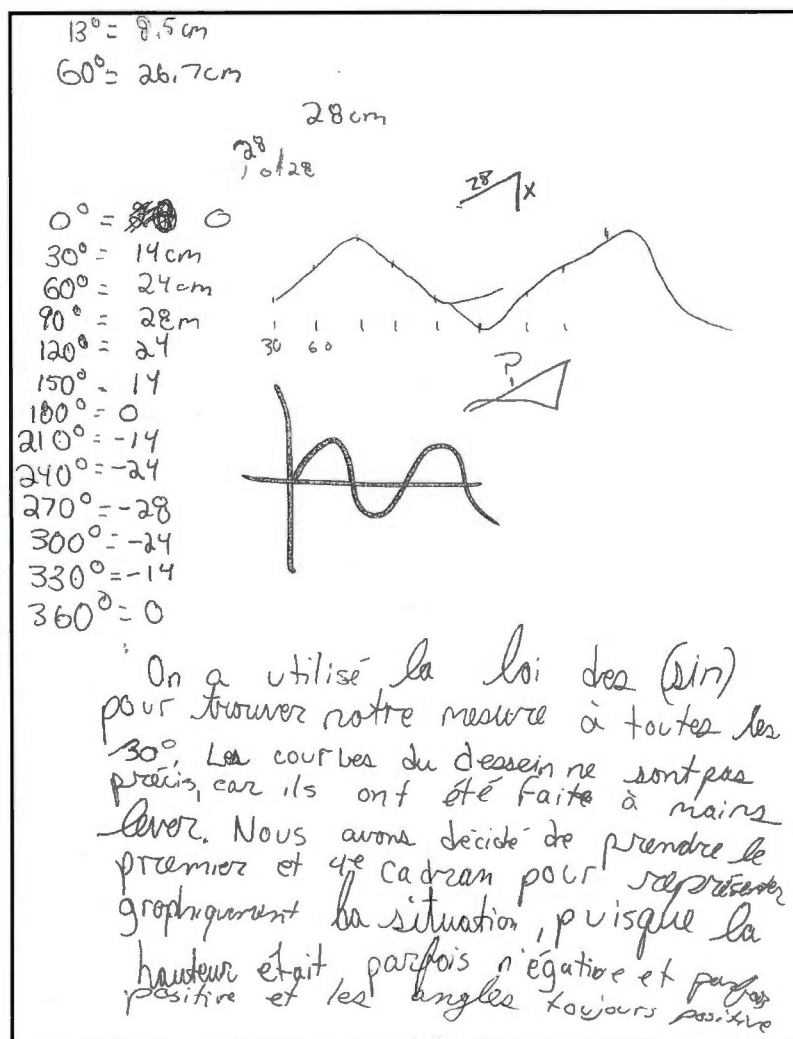 13° = 8,5 cm
60° = 26,7 cm
28 cm
28
28
28 x
0° = 0
30° = 14 cm
60° = 24 cm
90° = 28 m
120° = 24
150° = 14
180° = 0
210° = -14
240° = -24
270° = -28
300° = -24
330° = -14
360° = 0
30 60
?
On a utilisé la loi des (sin)
pour trouver notre mesure à toutes les
30°. Les courbes du dessein ne sont pas
précis, car ils ont été faite à mains
lever. Nous avons décidé de prendre le
premier et 4e cadran pour représenter
graphiquement la situation, puisque la
hauteur était parfois négative et parfois
positive et les angles toujours positive